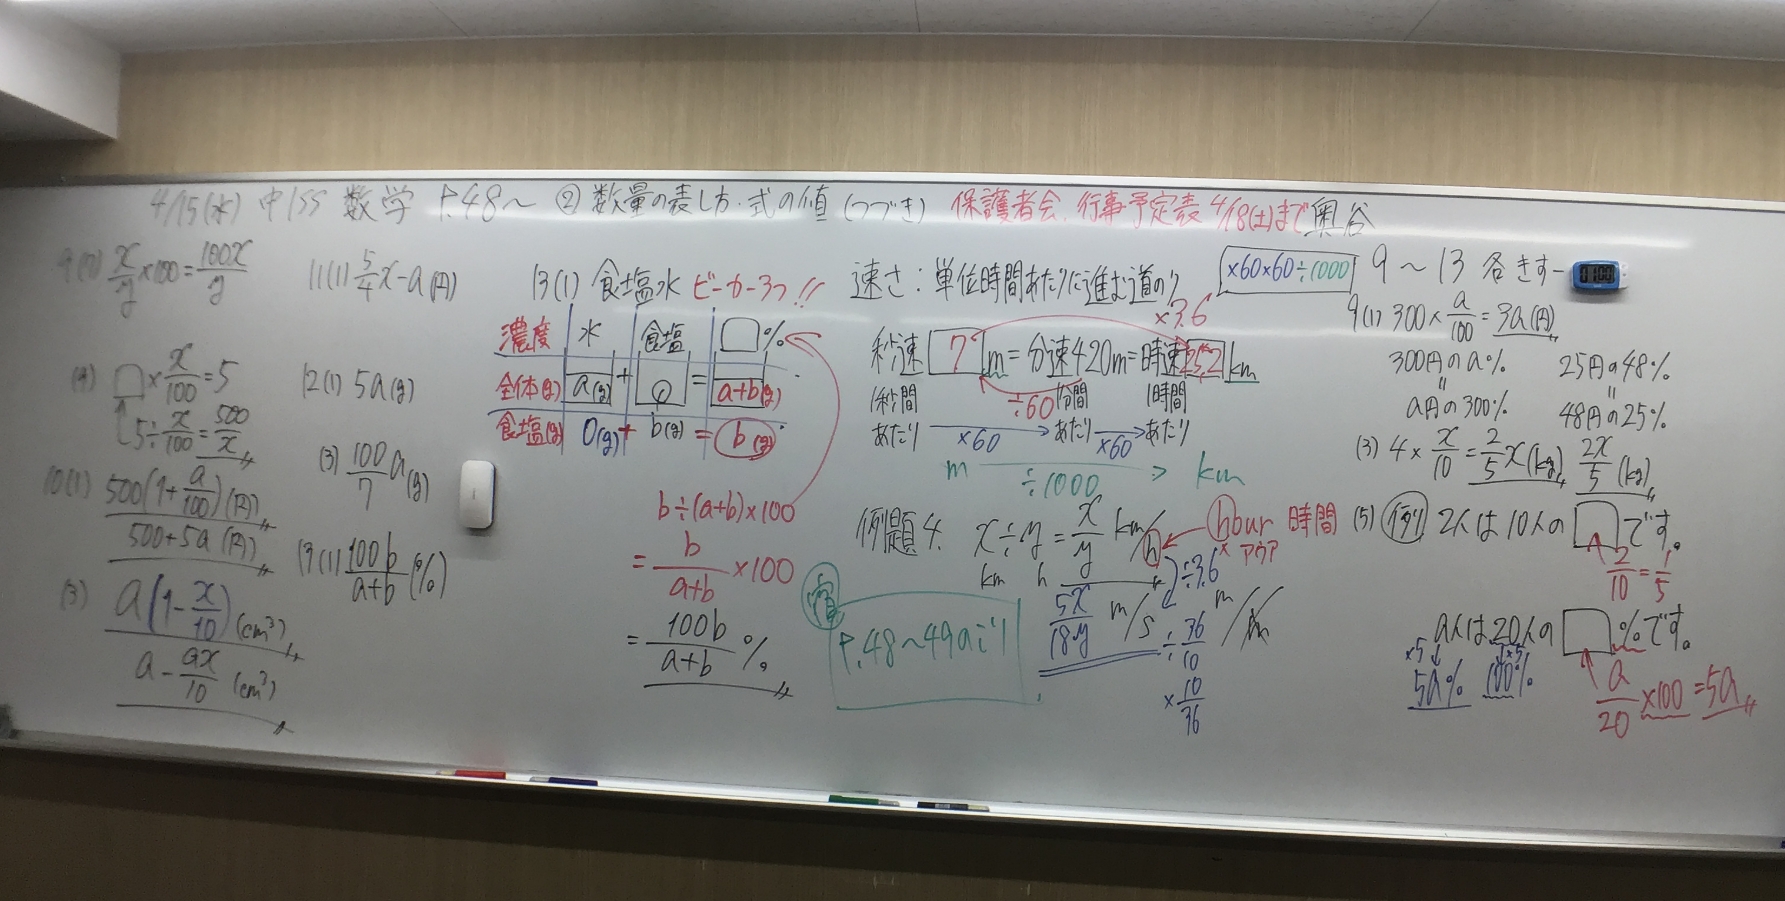 4/15(水) 中1SS 数学 P.48～ ② 数量の表し方・式の値 (つづき) 保護者会、行事予定表 4/18(土)まで 奥谷
x/y × 100 = 100x/y
(4) □ × x/100 = 5
5 ÷ x/100 = 500/x
10(1) 500(1 + a/100) (円)
500 + 5a (円)
(3) a(1 - x/10) (cm³)
a - ax/10 (cm³)
11(1) 5/4 x - a (円)
12(1) 5a (g)
(3) 100/7 a (g)
13(1) 100b/a+b (%)
13(1) 食塩水 ビーカー3つ!!
濃度 水 食塩 □%
全体(g) a(g) + = a+b(g)
食塩(g) 0(g) + b(g) = b(g)
b ÷ (a+b) × 100
= b/a+b × 100
= 100b/a+b %
速さ：単位時間あたりに進む道のり
×60×60÷1000
×3.6
秒速 7 m = 分速420m = 時速 25.2 km
1秒間 ÷60 1分間 1時間
あたり ×60 あたり ×60 あたり
m ÷1000 km
例題4. x ÷ y = x/y km/h hour 時間
アワア
km h
÷3.6
5x/18y m/s
÷ 36/10
× 10/36
m/
宿
P.48～49
9～13 各きす
0100
9(1) 300 × a/100 = 3a (円)
300円のa%
〃
a円の300%
25円の48%
〃
48円の25%
(3) 4 × x/10 = 2/5 x (kg) 2x/5 (kg)
(5) 例) 2人は10人の□です。
2/10 = 1/5
a人は20人の□%です。
×5 ×5
5a% 100%
a/20 × 100 = 5a